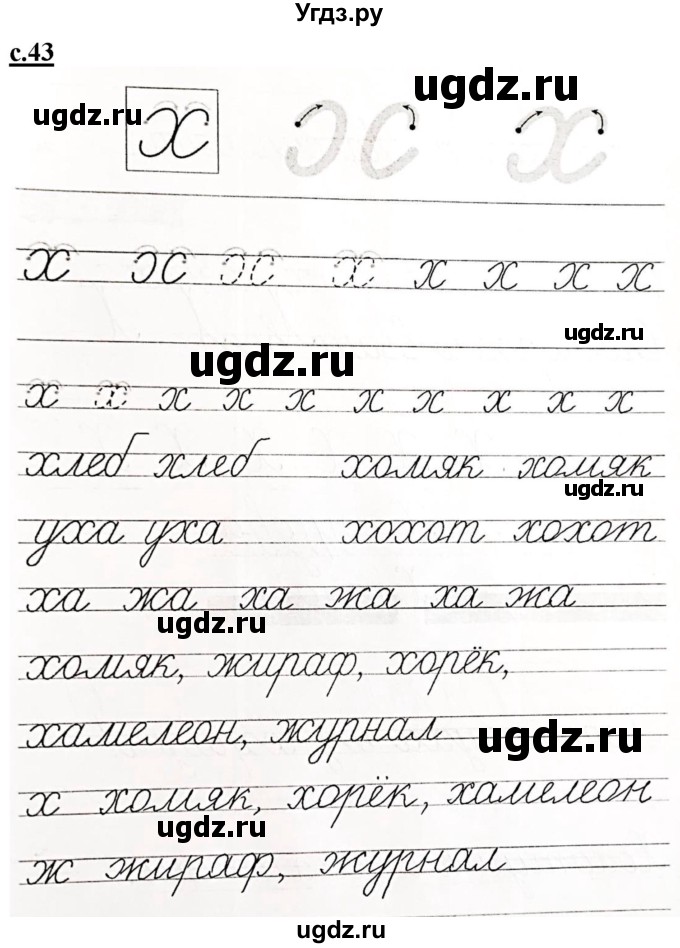 Угдз.ру
с.43
ugdz.ru
ugdz.ru
х х с х
х х с х с х х х х х
ugdz.ru
ugdz.ru
х х х х х х х х х х
хлеб хлеб хомяк хомяк
ugdz.ru
уха уха хохот хохот
ха жа ха жа ха жа
ugdz.ru
хомяк, жираф, хорёк,
хамелеон, журнал
ugdz.ru
х хомяк, хорёк, хамелеон
ugdz.ru
ж жираф, журнал
ugdz.ru